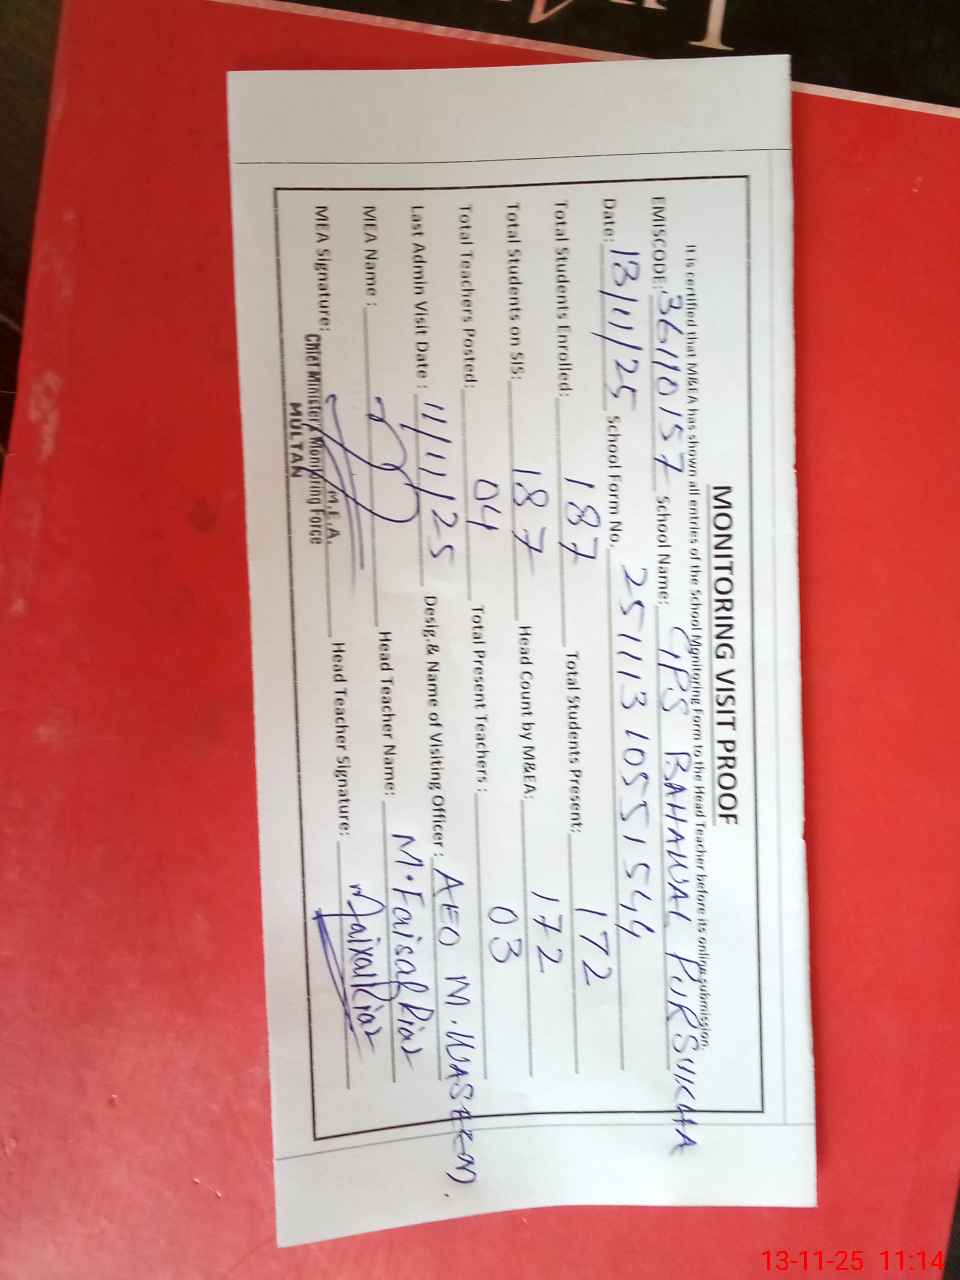 MONITORING VISIT PROOF
It is certified that M&EA has shown all entries of the School Monitoring Form to the Head Teacher before its online submission.
EMISCODE: 36110157 School Name: GPS BAHAWAL PUR SUKHA
Date: 13/11/25 School Form No. 25111310551544
Total Students Enrolled: 187 Total Students Present: 172
Total Students on SIS: 187 Head Count by M&EA: 172
Total Teachers Posted: 04 Total Present Teachers: 03
Last Admin Visit Date: 11/11/25 Desig.& Name of Visiting Officer: AEO M. WASEEM.
MEA Name: Head Teacher Name: M. Faisal Riaz
MEA Signature: M.E.A. Head Teacher Signature: Faisal Riaz
Chief Minister's Monitoring Force
MULTAN
13-11-25 11:14